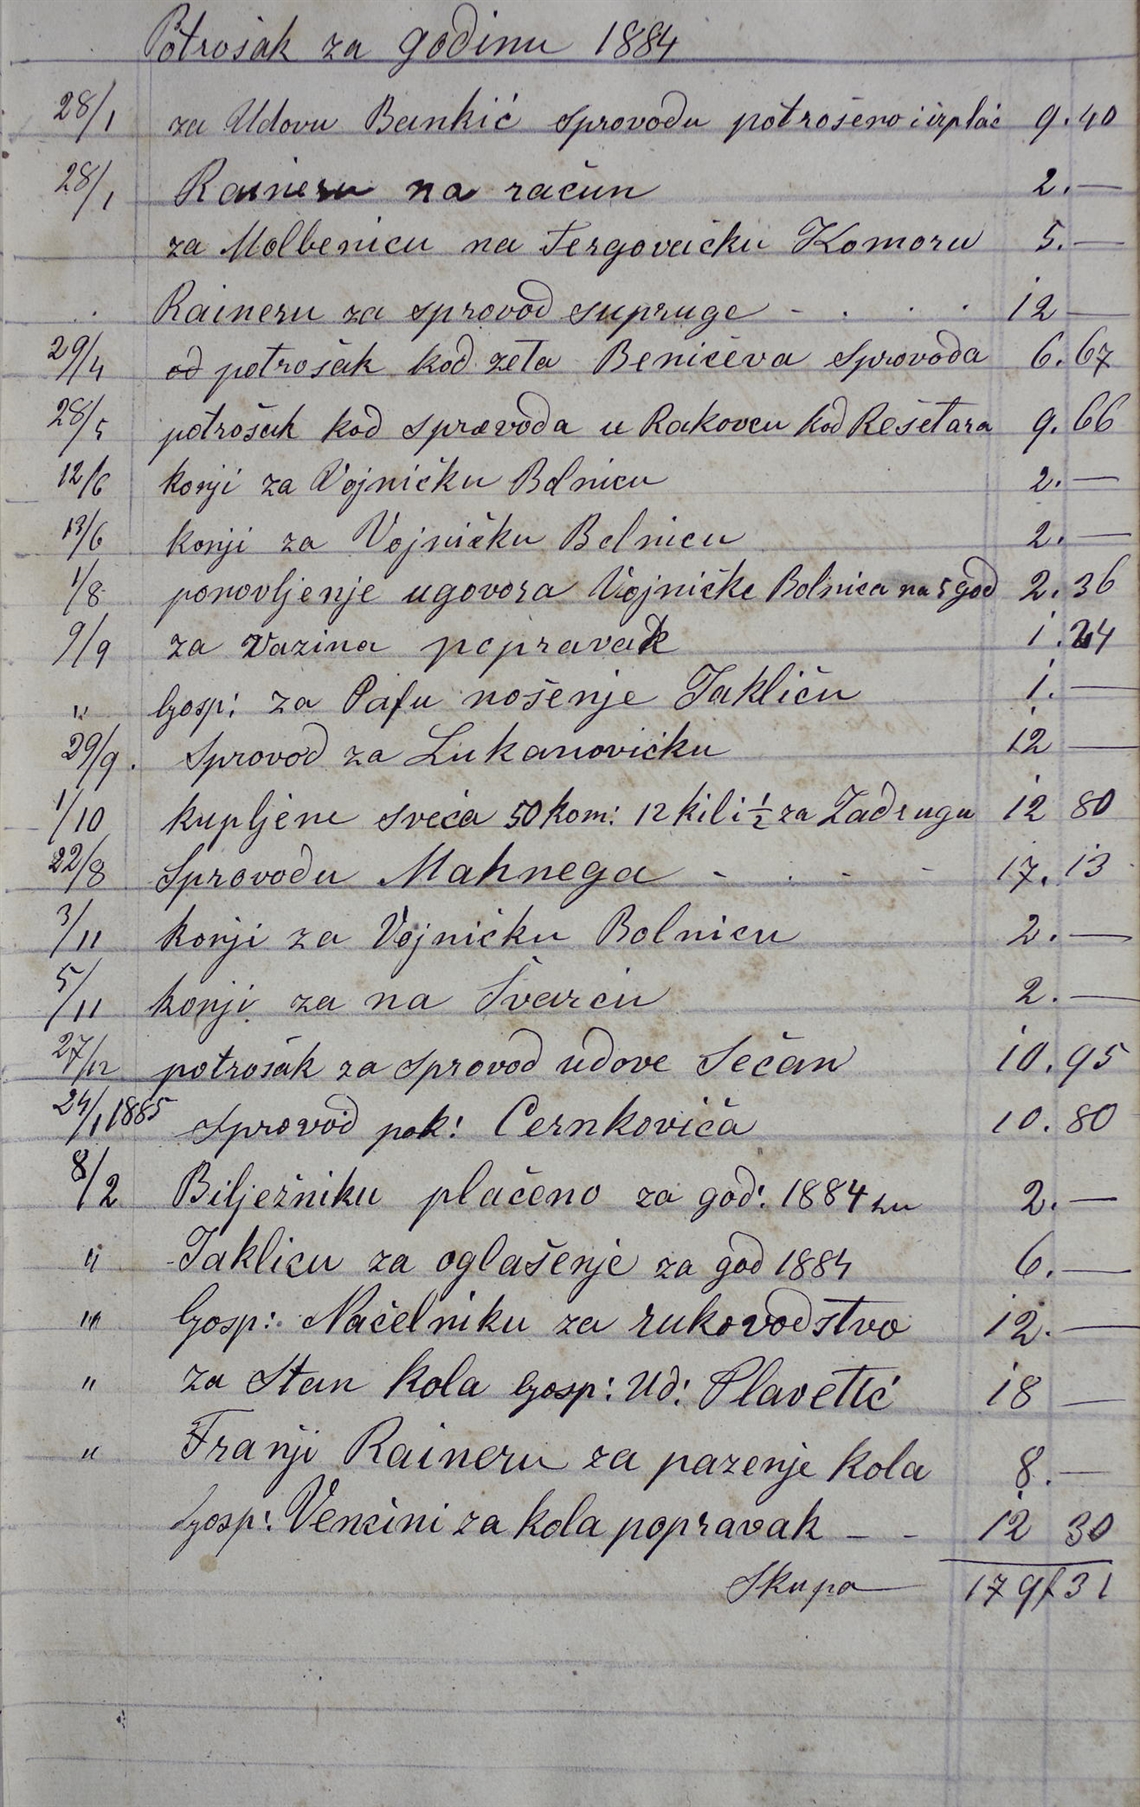 Potrošak za godinu 1884
28/1 za Udovu Bankić sprovodu potrošeno i isplać 9.40
28/1 Raineru na račun 2.—
za Molbenicu na Tergovačku Komoru 5.—
Raineru za sprovod supruge - . . . 12 —
29/4 od potrošak kod zeta Beničeva sprovoda 6.67
28/5 potrošak kod sprovoda u Rakovcu kod Rešetara 9.66
12/6 konji za Vojničku Bolnicu 2.—
13/6 konji za Vojničku Bolnicu 2.—
1/8 ponovljenje ugovora Vojničke Bolnica na 5 god 2.36
9/9 za Vazina popravak 1.24
" Gosp: za Pafu nošenje Jakliču 1.—
29/9. Sprovod za Lukanovićku 12 —
1/10 kupljene sveća 50 kom: 12 kili ½ za Zadrugu 12 80
22/8 Sprovodu Mahnega - . . - 17.13
3/11 konji za Vojničku Bolnicu 2.—
5/11 konji za na Švarču 2.—
27/12 potrošak za sprovod udove Sečan 10.95
24/1 1885 Sprovod pok: Cernkoviča 10.80
8/2 Bilježniku plačeno za god: 1884 tu 2.—
" Jaklicu za oglašenje za god 1884 6.—
" Gosp: Načelniku za rukovodstvo 12.—
" za Stan kola Gosp: Ud: Plavetić 18 —
" Franji Raineru za pazenje kola 8.—
Gosp: Venčini za kola popravak - - 12 30
Skupa 179f31